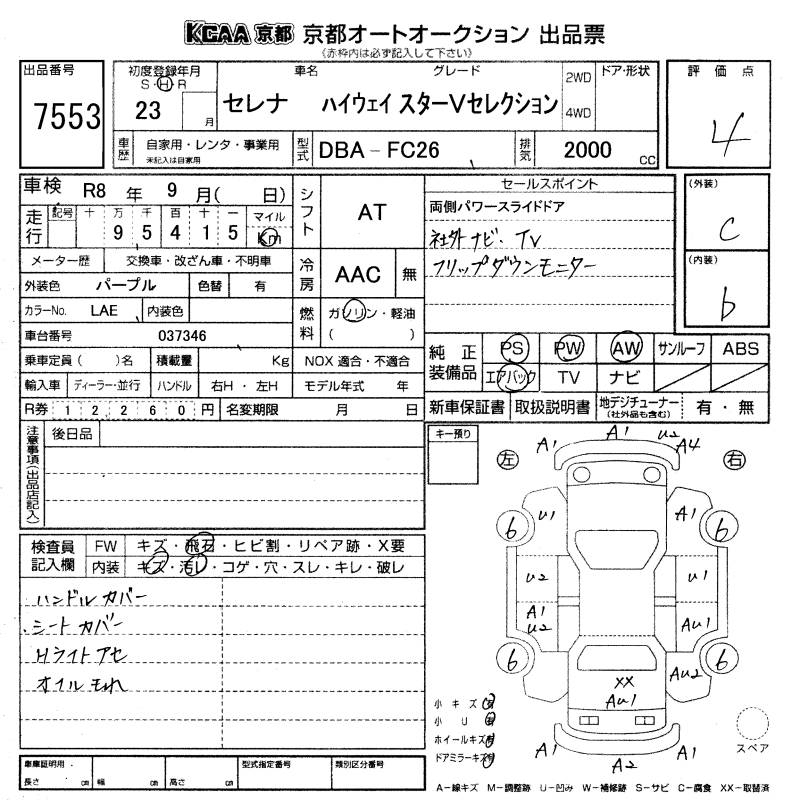 KCAA 京都 京都オートオークション 出品票
(赤枠内は必ず記入して下さい)
出品番号
7553
初度登録年月
S・H・R
23 月
車名 グレード
セレナ ハイウェイ スターVセレクション
2WD
4WD
ドア・形状
評価点
4
車歴 自家用・レンタ・事業用
未記入は自家用
型式 DBA-FC26
排気 2000 CC
車検 R8 年 9 月( 日)
走行 記号 十 万 千 百 十 一 マイル
9 5 4 1 5 Km
メーター歴 交換車・改ざん車・不明車
外装色 パープル 色替 有
カラーNo. LAE 内装色
車台番号 037346
乗車定員( )名 積載量 Kg
輸入車 ディーラー・並行 ハンドル 右H・左H
R券 1 2 2 6 0 円 名変期限 月 日
シフト AT
冷房 AAC 無
燃料 ガソリン・軽油
( )
NOX 適合・不適合
モデル年式 年
セールスポイント
両側パワースライドドア
社外ナビ・TV
フリップダウンモニター
(外装)
C
(内装)
b
純正装備品 PS PW AW サンルーフ ABS
エアバック TV ナビ
新車保証書 取扱説明書 地デジチューナー
(社外品も含む)
有・無
注意事項(出品店記入)
後日品
キー預り
左 右
A1 A1 U2 A4
6 U1 A1 6
U2 U1
A1
U2 AU1
6 AU2 6
XX
AU1
A1 A2 A1
検査員記入欄
FW キズ・飛石・ヒビ割・リペア跡・X要
内装 キズ・汚レ・コゲ・穴・スレ・キレ・破レ
ハンドルカバー
シートカバー
Hライトアセ
オイルモれ
小キズ 有
小U 有
ホイールキズ 有
ドアミラーキズ 有
スペア
車庫証明用
長さ cm 幅 cm 高さ cm
型式指定番号
類別区分番号
A-線キズ M-調整跡 U-凹み W-補修跡 S-サビ C-腐食 XX-取替済